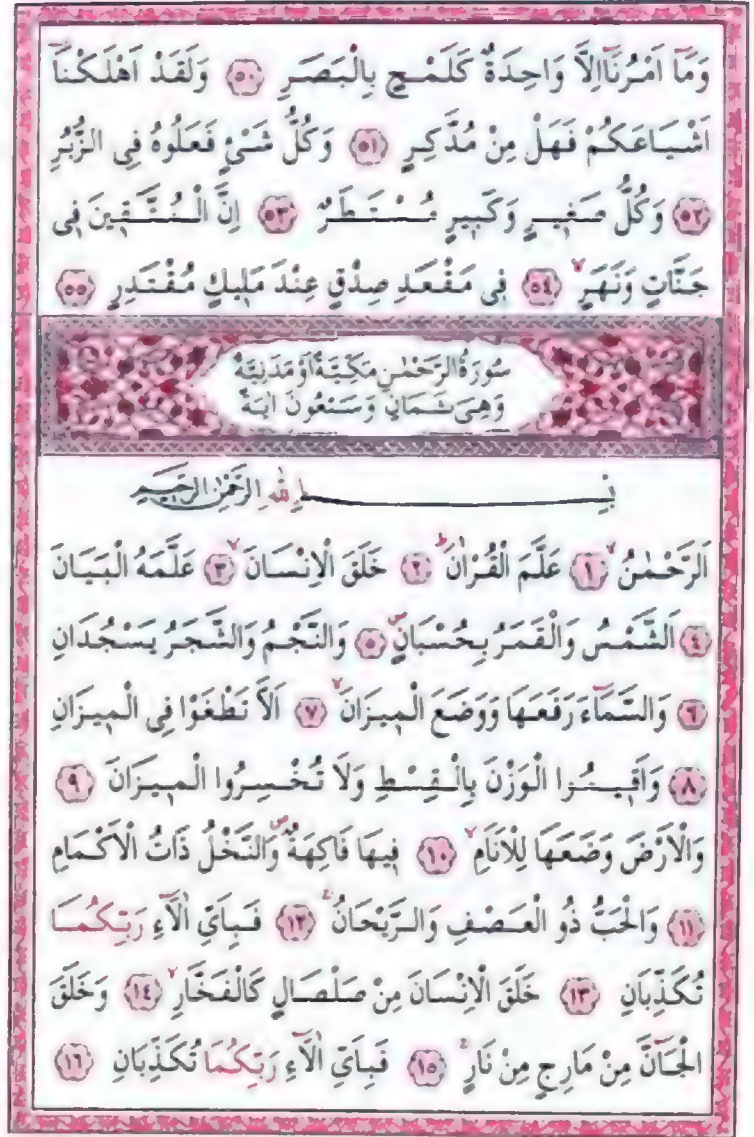 وَمَٓا اَمْرُنَٓا اِلَّا وَاحِدَةٌ كَلَمْحٍ بِالْبَصَرِ ﴿٥٠﴾ وَلَقَدْ اَهْلَكْنَٓا
اَشْيَاعَكُمْ فَهَلْ مِنْ مُدَّكِرٍ ﴿٥١﴾ وَكُلُّ شَيْءٍ فَعَلُوهُ فِى الزُّبُرِ
﴿٥٢﴾ وَكُلُّ صَغٖيرٍ وَكَبٖيرٍ مُسْتَطَرٌ ﴿٥٣﴾ اِنَّ الْمُتَّقٖينَ فٖى
جَنَّاتٍ وَنَهَرٍۙ ﴿٥٤﴾ فٖى مَقْعَدِ صِدْقٍ عِنْدَ مَلٖيكٍ مُقْتَدِرٍ ﴿٥٥﴾
سُورَةُ الرَّحْمٰنِ مَكِّيَّةٌ اَوْ مَدَنِيَّةٌ
وَهِىَ ثَمَانٍ وَسَبْعُونَ اٰيَةً
بِسْمِ اللّٰهِ الرَّحْمٰنِ الرَّحٖيمِ
اَلرَّحْمٰنُۙ ﴿١﴾ عَلَّمَ الْقُرْاٰنَۜ ﴿٢﴾ خَلَقَ الْاِنْسَانَۙ ﴿٣﴾ عَلَّمَهُ الْبَيَانَ
﴿٤﴾ اَلشَّمْسُ وَالْقَمَرُ بِحُسْبَانٍۖ ﴿٥﴾ وَالنَّجْمُ وَالشَّجَرُ يَسْجُدَانِ
﴿٦﴾ وَالسَّمَٓاءَ رَفَعَهَا وَوَضَعَ الْمٖيزَانَۙ ﴿٧﴾ اَلَّا تَطْغَوْا فِى الْمٖيزَانِ
﴿٨﴾ وَاَقٖيمُوا الْوَزْنَ بِالْقِسْطِ وَلَا تُخْسِرُوا الْمٖيزَانَ ﴿٩﴾
وَالْاَرْضَ وَضَعَهَا لِلْاَنَامِۙ ﴿١٠﴾ فٖيهَا فَاكِهَةٌۖ وَالنَّخْلُ ذَاتُ الْاَكْمَامِ
﴿١١﴾ وَالْحَبُّ ذُو الْعَصْفِ وَالرَّيْحَانُۚ ﴿١٢﴾ فَبِاَيِّ اٰلَٓاءِ رَبِّكُمَا
تُكَذِّبَانِ ﴿١٣﴾ خَلَقَ الْاِنْسَانَ مِنْ صَلْصَالٍ كَالْفَخَّارِۙ ﴿١٤﴾ وَخَلَقَ
الْجَٓانَّ مِنْ مَارِجٍ مِنْ نَارٍۚ ﴿١٥﴾ فَبِاَيِّ اٰلَٓاءِ رَبِّكُمَا تُكَذِّبَانِ ﴿١٦﴾